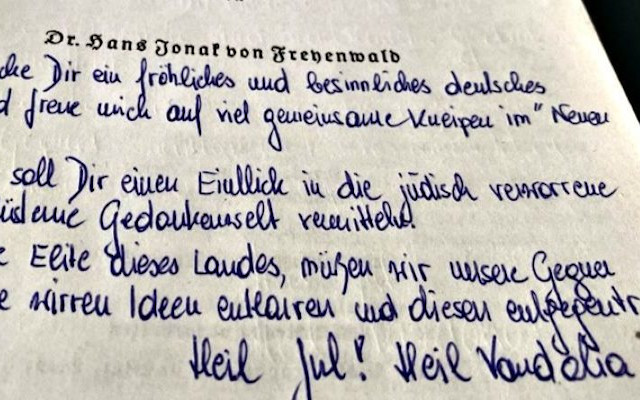 Dr. Hans Jonak von Freyenwald
che Dir ein fröhliches und besinnliches deutsches
d freue mich auf viel gemeinsame Kneipen im "Neuen
soll Dir einen Einblick in die jüdisch verworrene
Gedankenwelt vermitteln.
Elite dieses Landes, müßen wir unsere Gegner
e wirren Ideen entlarven und diesen entgegentr
Heil Jul! Heil Vandalia